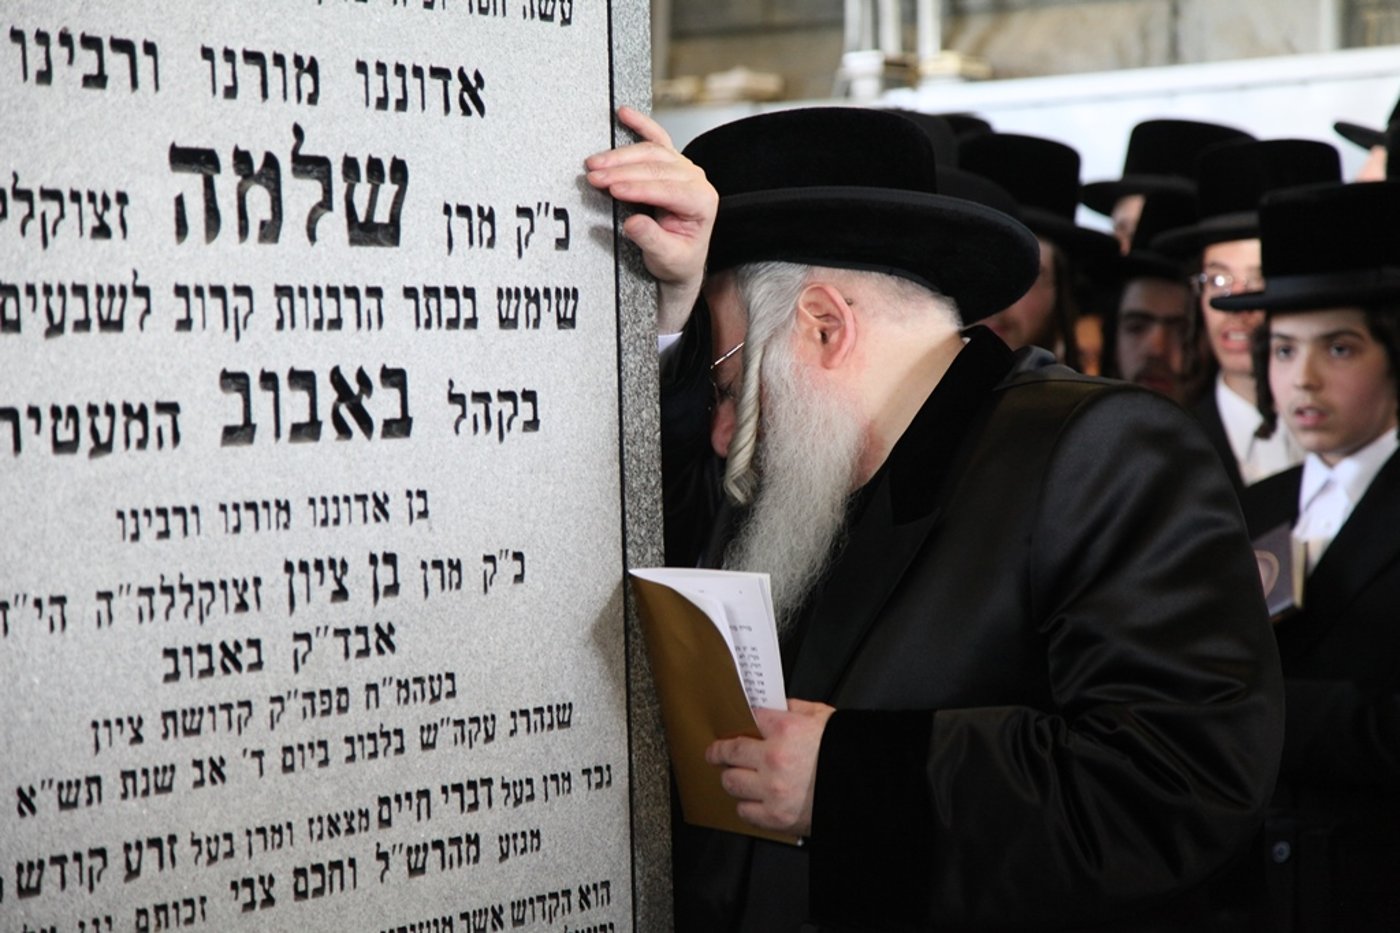 אדוננו מורנו ורבינו
כ"ק מרן שלמה
שימש בכתר הרבנות קרוב לשבעים
בקהל באבוב המעטיר
בן אדוננו מורנו ורבינו
כ"ק מרן בן ציון זצוקללה"ה הי"ד
אבד"ק באבוב
בעהמ"ח ספה"ק קדושת ציון
שנהרג עקה"ש בלבוב ביום ד' אב שנת תש"א
נכד מרן בעל דברי חיים מצאנז ומרן בעל זרע קודש
מגזע מהרש"ל וחכם צבי זכותם
הוא הקדוש אשר